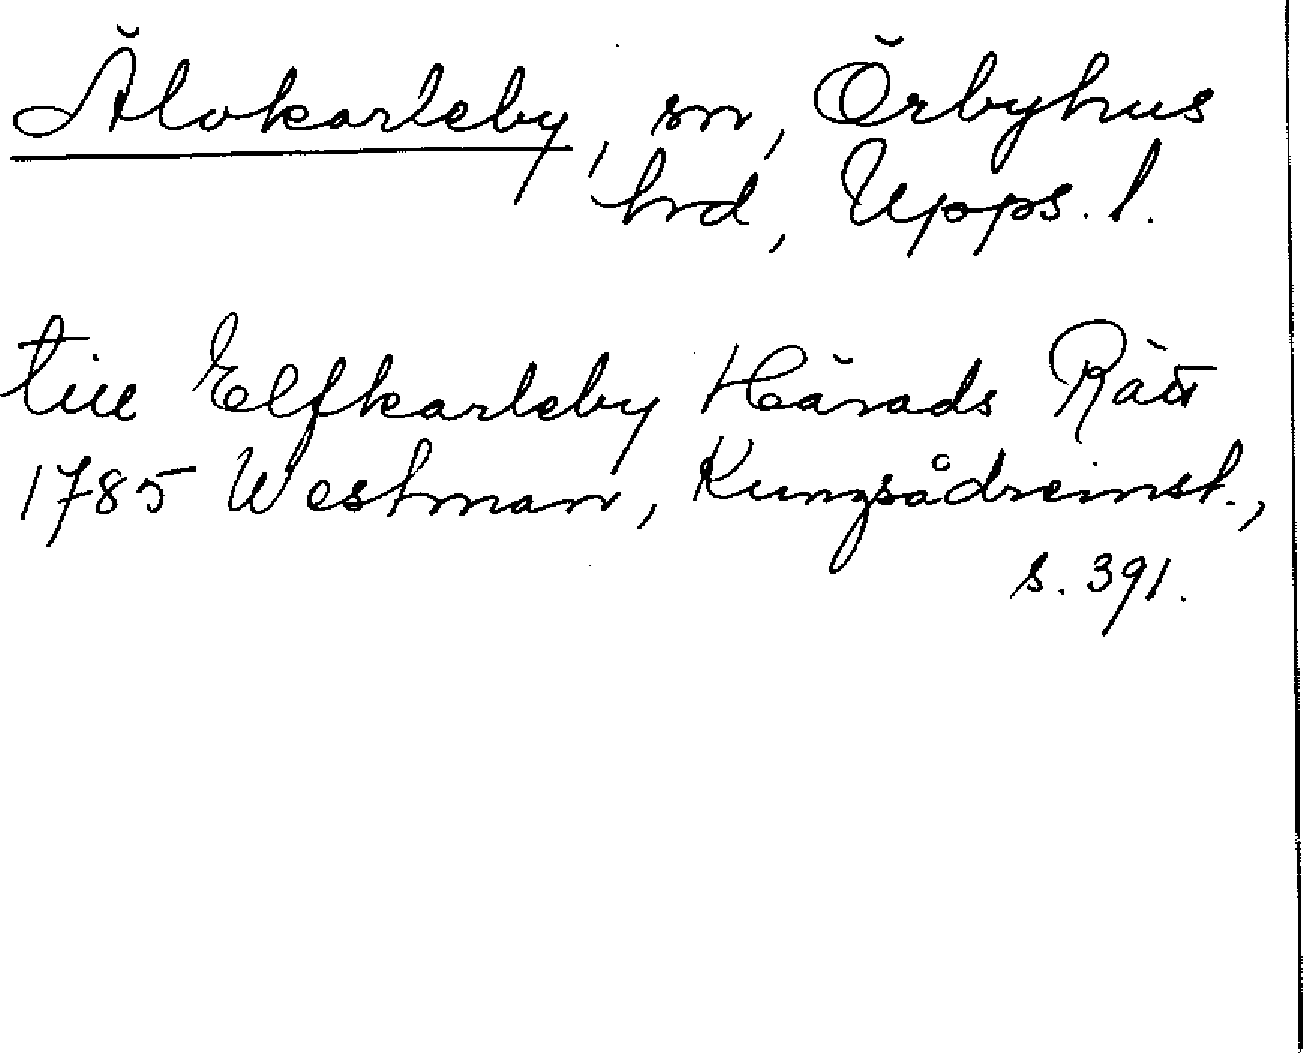 Älvkarleby, sn, Örbyhus
hrd, Upps. l.
till Elfkarleby Härads Rätt
1785 Westman, Kungsådreinst.,
s. 391.